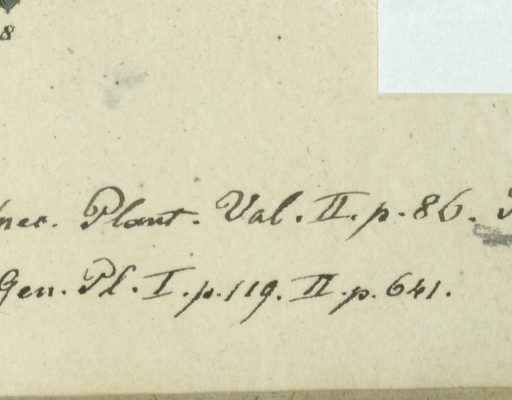 8
Plant. Val. II. p. 86.
Gen. Pl. I. p. 119. II. p. 641.